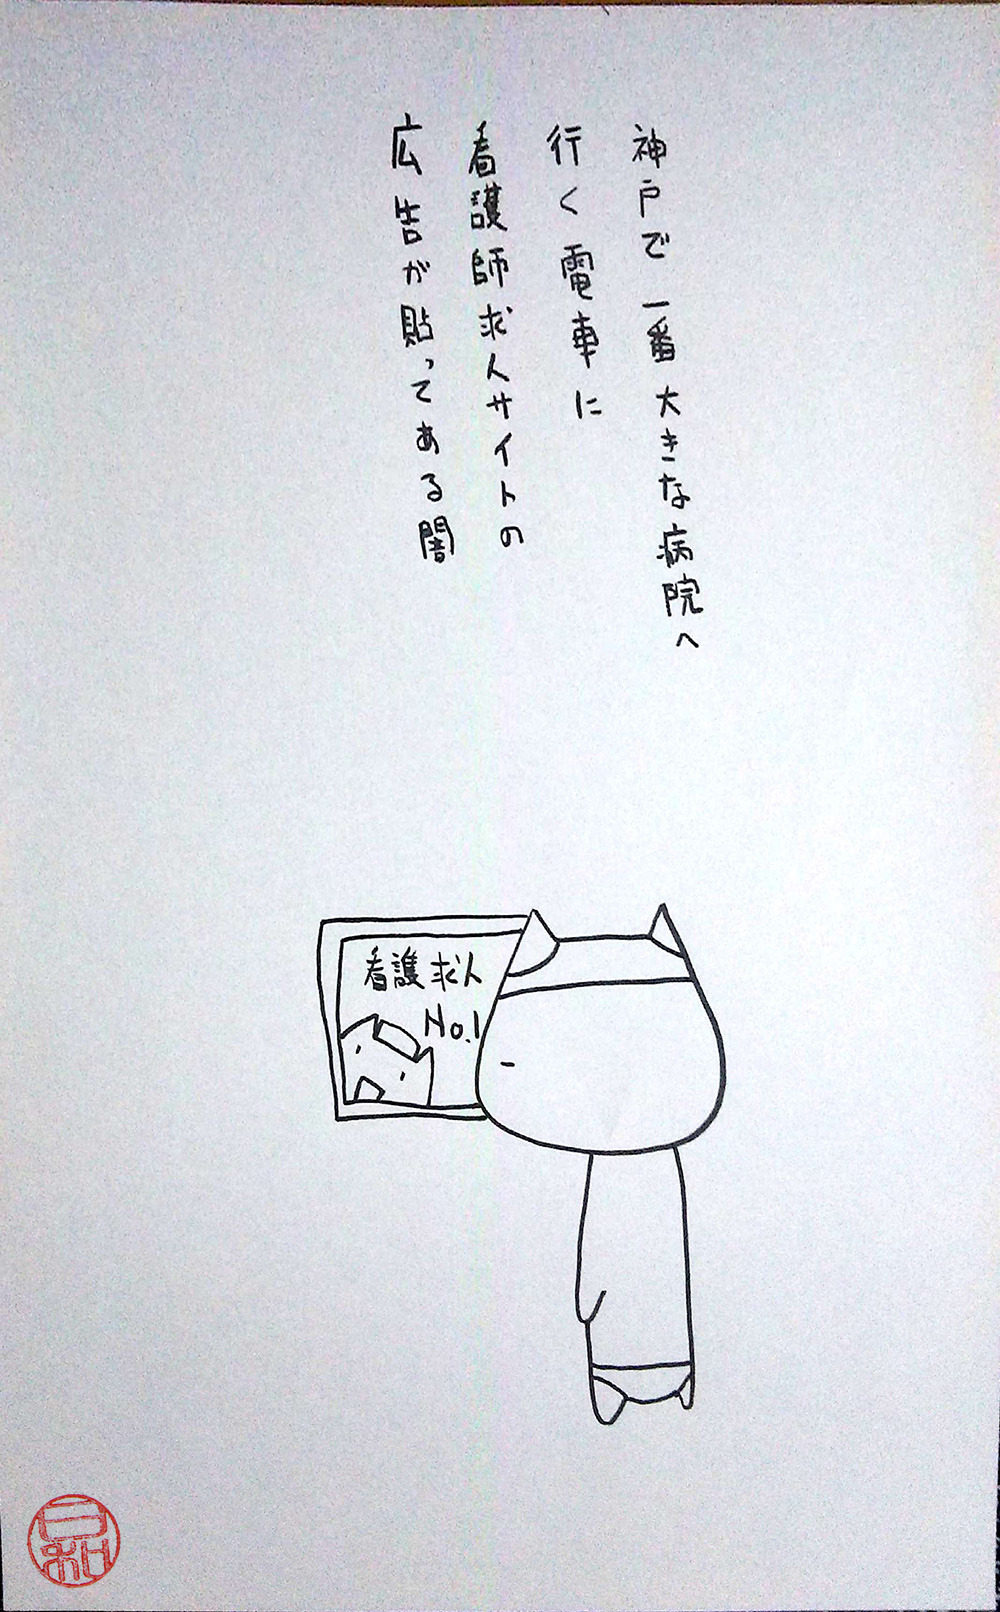 神戸で一番大きな病院へ
行く電車に
看護師求人サイトの
広告が貼ってある闇
看護求人
No.1